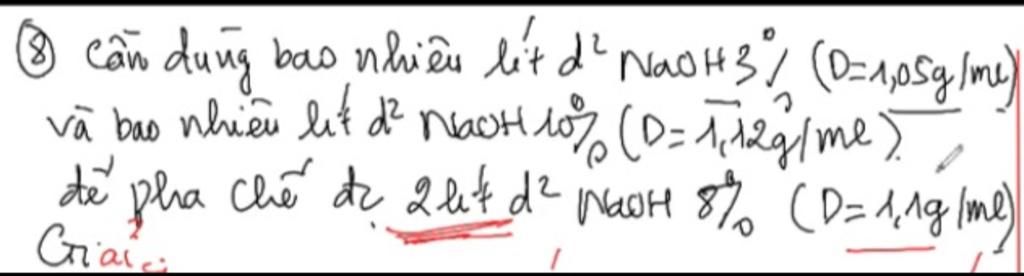 ⑧ Cần dùng bao nhiêu lít d² NaOH 3% (D=1,05g/ml)
và bao nhiêu lít d² NaOH 10% (D=1,12g/ml).
để pha chế đc 2 lít d² NaOH 8% (D=1,1g/ml)
Giải